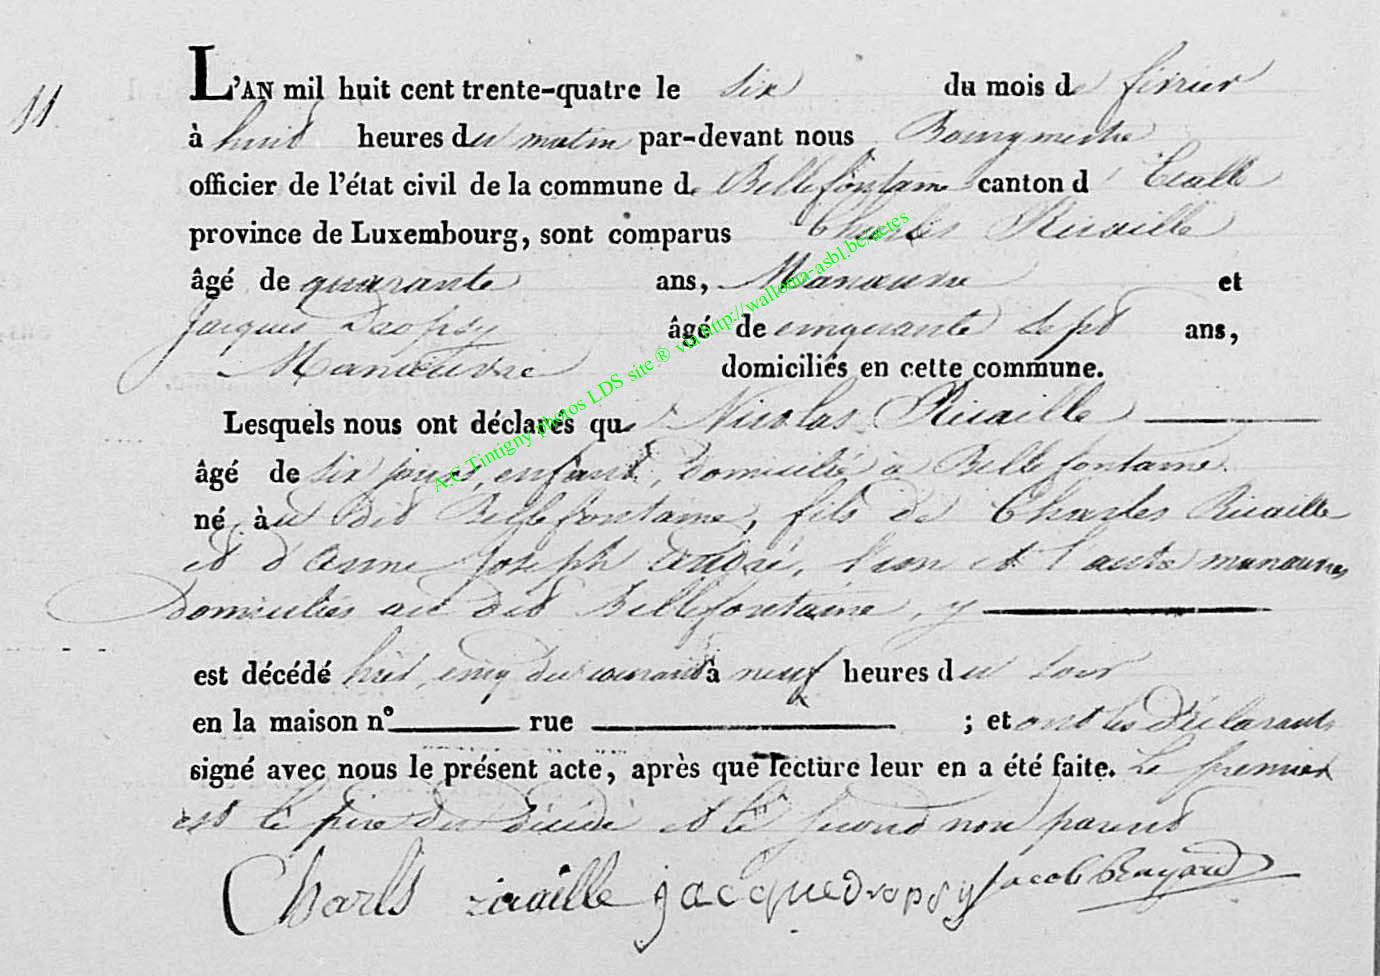 11
L'AN mil huit cent trente-quatre le six du mois de février
à huit heures du matin par-devant nous Bourgmestre
officier de l'état civil de la commune de Bellefontaine canton d'Etalle
province de Luxembourg, sont comparus Charles Ricaille
âgé de quarante ans, Manœuvre et
Jacques Dropsy âgé de cinquante sept ans,
Manœuvre domiciliés en cette commune.
Lesquels nous ont déclarés que Nicolas Ricaille
âgé de six jours, enfant, domicilié à Bellefontaine.
né au dit Bellefontaine, fils de Charles Ricaille
et d'anne Joseph André, l'un et l'autre manœuvres
domiciliés au dit Bellefontaine, y
est décédé hier, cinq du courant à neuf heures du soir
en la maison nº rue ; et ont les déclarants
signé avec nous le présent acte, après que lecture leur en a été faite. Le premier
est le père du décédé et le second non parent
Charls ricaille jacque dropsy Jacob
A.C Tintigny photos LDS site ® via http://wallonia-asbl.be/actes